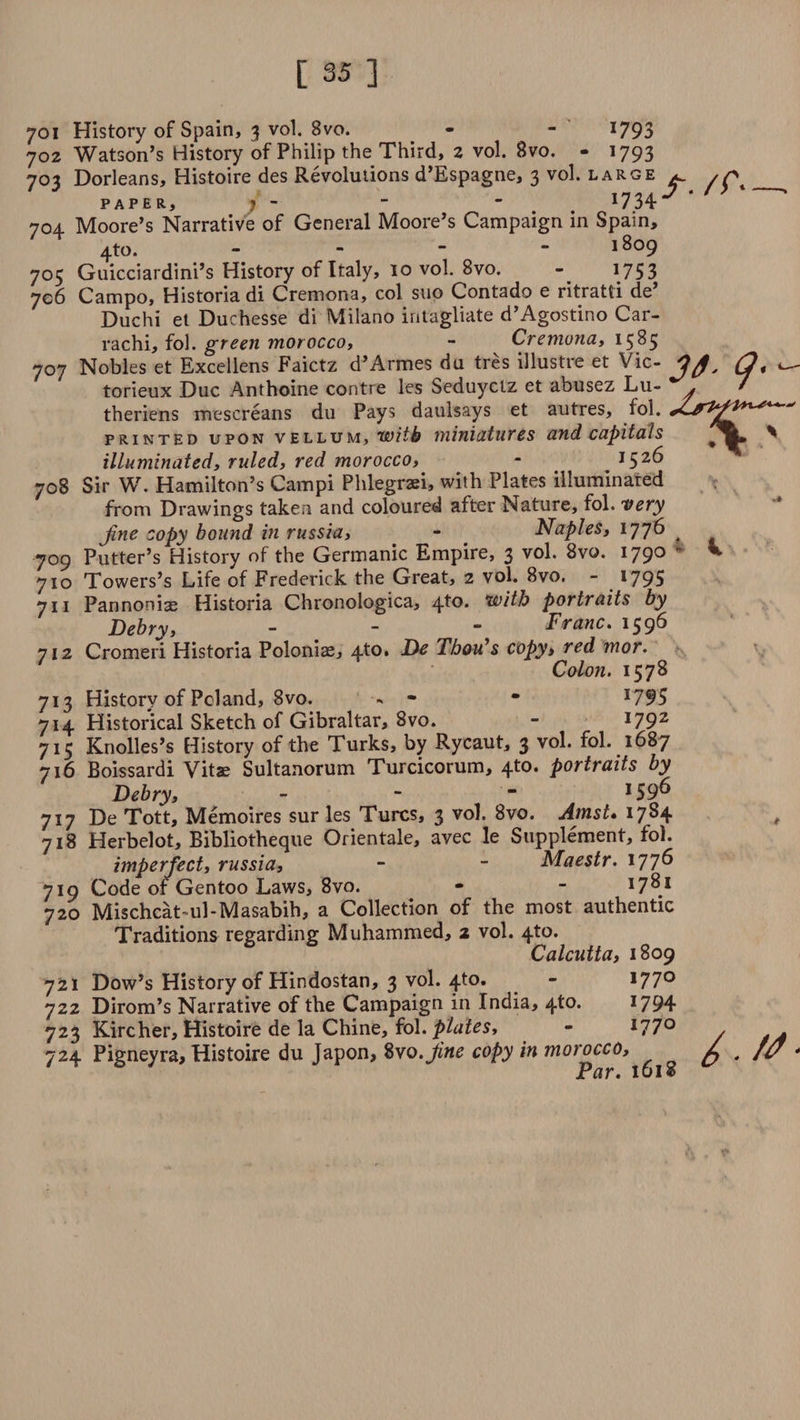 [ 35 ]
701 History of Spain, 3 vol. 8vo. - - 1793
702 Watson's History of Philip the Third, 2 vol. 8vo. - 1793
703 Dorleans, Histoire des Révolutions d'Espagne, 3 vol. LARGE
PAPER, - - - 1734 5.15.—
704 Moore's Narrative of General Moore's Campaign in Spain,
4to. - - - - 1809
705 Guicciardini's History of Italy, 10 vol. 8vo. - 1753
706 Campo, Historia di Cremona, col suo Contado e ritratti de'
Duchi et Duchesse di Milano intagliate d'Agostino Car-
rachi, fol. green morocco, - Cremona, 1585
707 Nobles et Excellens Faictz d'Armes du très illustre et Vic-
torieux Duc Anthoine contre les Seduyctz et abusez Lu-
theriens mescréans du Pays daulsays et autres, fol.
PRINTED UPON VELLUM, with miniatures and capitals
illuminated, ruled, red morocco, - 1526
708 Sir W. Hamilton's Campi Phlegræi, with Plates illuminated
from Drawings taken and coloured after Nature, fol. very
fine copy bound in russia, - Naples, 1776
709 Putter's History of the Germanic Empire, 3 vol. 8vo. 1790
710 Towers's Life of Frederick the Great, 2 vol. 8vo. - 1795
711 Pannoniæ Historia Chronologica, 4to. with portraits by
Debry, - - - Franc. 1596
712 Cromeri Historia Poloniæ, 4to. De Thou's copy, red mor.
Colon. 1578
713 History of Poland, 8vo. - - 1795
714 Historical Sketch of Gibraltar, 8vo. - 1792
715 Knolles's History of the Turks, by Rycaut, 3 vol. fol. 1687
716 Boissardi Vitæ Sultanorum Turcicorum, 4to. portraits by
Debry, - - - 1596
717 De Tott, Mémoires sur les Turcs, 3 vol. 8vo. Amst. 1784
718 Herbelot, Bibliotheque Orientale, avec le Supplément, fol.
imperfect, russia, - - Maestr. 1776
719 Code of Gentoo Laws, 8vo. - - 1781
720 Mischcàt-ul-Masabih, a Collection of the most authentic
Traditions regarding Muhammed, 2 vol. 4to.
Calcutta, 1809
721 Dow's History of Hindostan, 3 vol. 4to. - 1770
722 Dirom's Narrative of the Campaign in India, 4to. 1794
723 Kircher, Histoire de la Chine, fol. plates, - 1770
724 Pigneyra, Histoire du Japon, 8vo. fine copy in morocco,
Par. 1618 6.10.